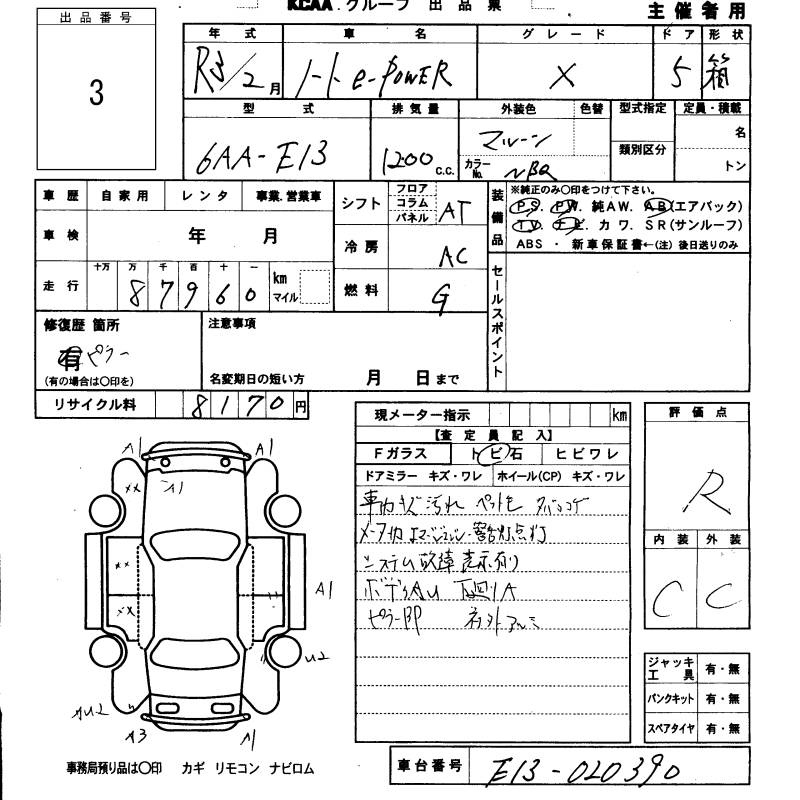 KCAA グループ 出品票
主催者用
出品番号
3
年式 車名 グレード ドア 形状
R3/2月 ノート e-POWER X 5 箱
型式 排気量 外装色 色替 型式指定 定員・積載
6AA-E13 1200 c.c. マルーン 類別区分 名
カラーNo. NBQ トン
車歴 自家用 レンタ 事業.営業車
車検 年 月
走行 十万 万 千 百 十 一 km マイル
8 7 9 6 0
シフト フロア コラム パネル AT
冷房 AC
燃料 G
装備品 ※純正のみ〇印をつけて下さい。
PS. PW. 純AW. AB(エアバック)
TV. ナビ. カワ. SR(サンルーフ)
ABS ・ 新車保証書←(注) 後日送りのみ
セールスポイント
修復歴 箇所
有 ピラー
(有の場合は〇印を)
注意事項
名変期日の短い方 月 日まで
リサイクル料 8170円
現メーター指示 km
【査定員記入】
Fガラス トビ石 ヒビワレ
ドアミラー キズ・ワレ ホイール(CP) キズ・ワレ
車内キズ汚れ ペットモ タバココゲ
メータ内エマージェンシー警告灯点灯
システム故障表示有り
ボデーAU 下回りA
ピラーBP 社外アルミ
評価点
R
内装 外装
C C
ジャッキ工具 有・無
パンクキット 有・無
スペアタイヤ 有・無
A1 A1
×× A1
××
×× A1
U2
AU2
A3 A1
事務局預り品は〇印 カギ リモコン ナビロム
車台番号 E13-020390